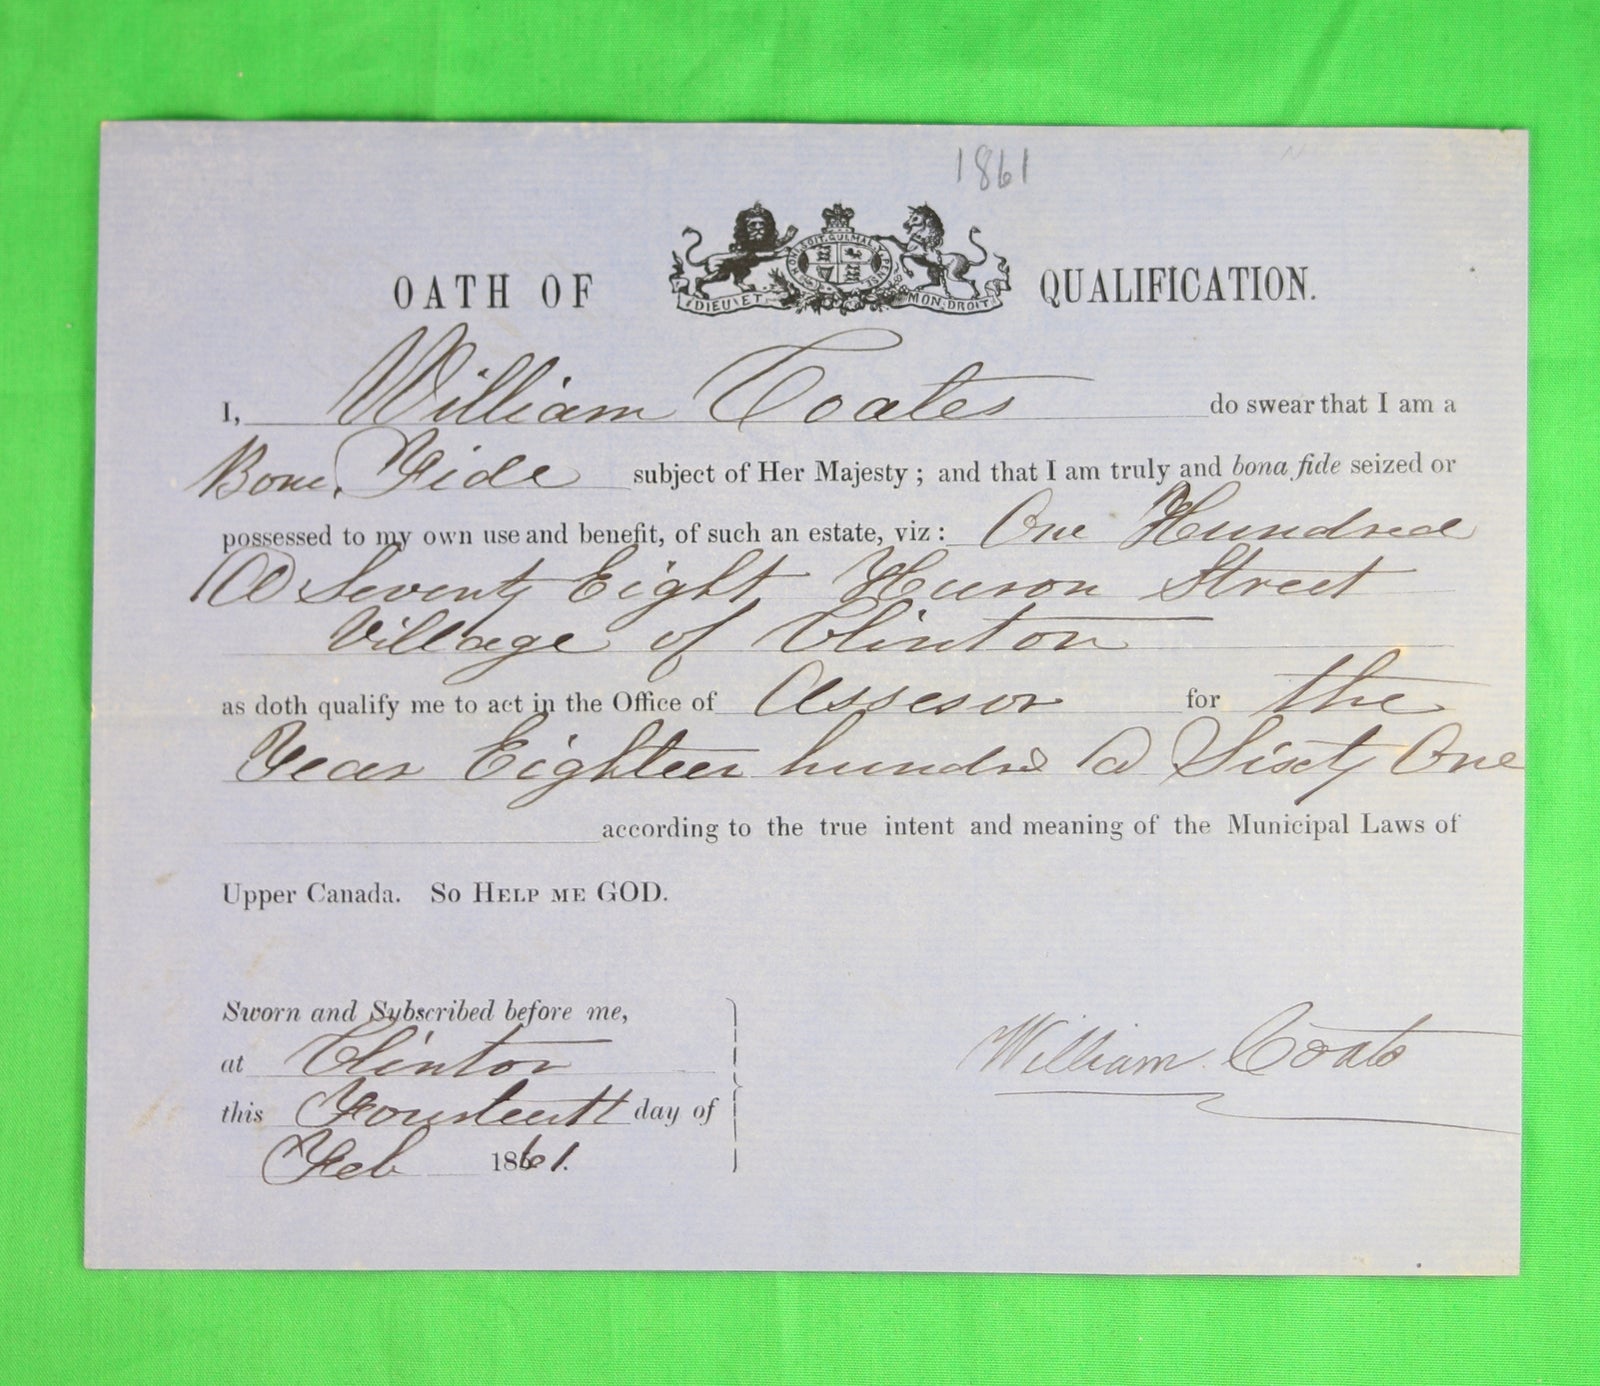 1861
OATH OF QUALIFICATION.
HONI SOIT QUI MAL Y PENSE
DIEU ET MON DROIT
I, William Coates do swear that I am a
Bona Fide subject of Her Majesty ; and that I am truly and bona fide seized or
possessed to my own use and benefit, of such an estate, viz : One Hundred
& Seventy Eight Huron Street
Village of Clinton
as doth qualify me to act in the Office of Assesor for the
Year Eighteen hundred & Sixty One
according to the true intent and meaning of the Municipal Laws of
Upper Canada. So HELP ME GOD.
Sworn and Subscribed before me,
at Clinton
this Fourteenth day of
Feb 1861.
William Coats